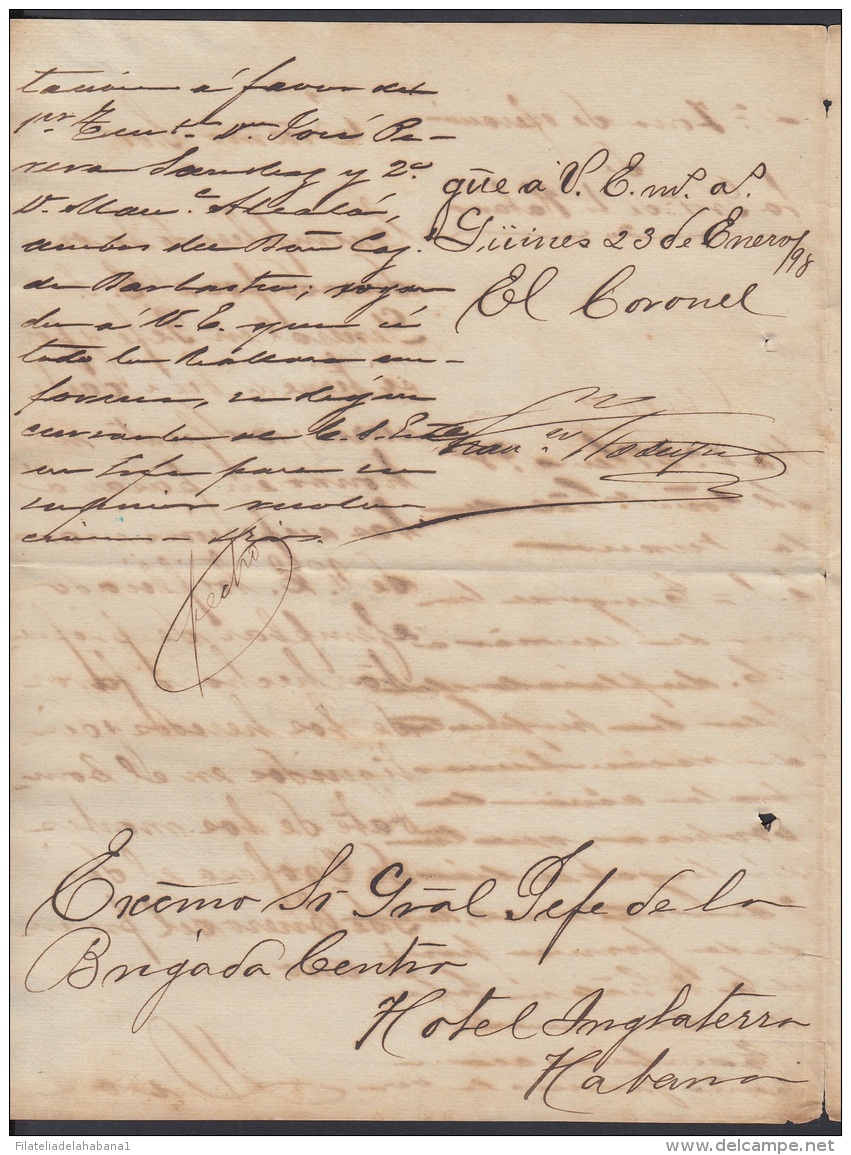 tacion á favor del
pr. Tente. Dn. José Pe-
rera Sanchez y 2º
D. Manl. Alcalá,
ambos del Bón Caz.
de Barbastro; rogan
do á V. E. que si
todo lo hallara con-
forme, se digne
cursarlo al E. S. Gral
en Jefe para su
superior resolu
cion - Dios.
gũe a V. E. ms. as.
Güines 23 de Enero/98
El Coronel
Fecho
Excmo Sr Grãl Jefe de la
Brigada Centro
Hotel Inglaterra
Habana
Filateliadelahabana1
delcampe.net